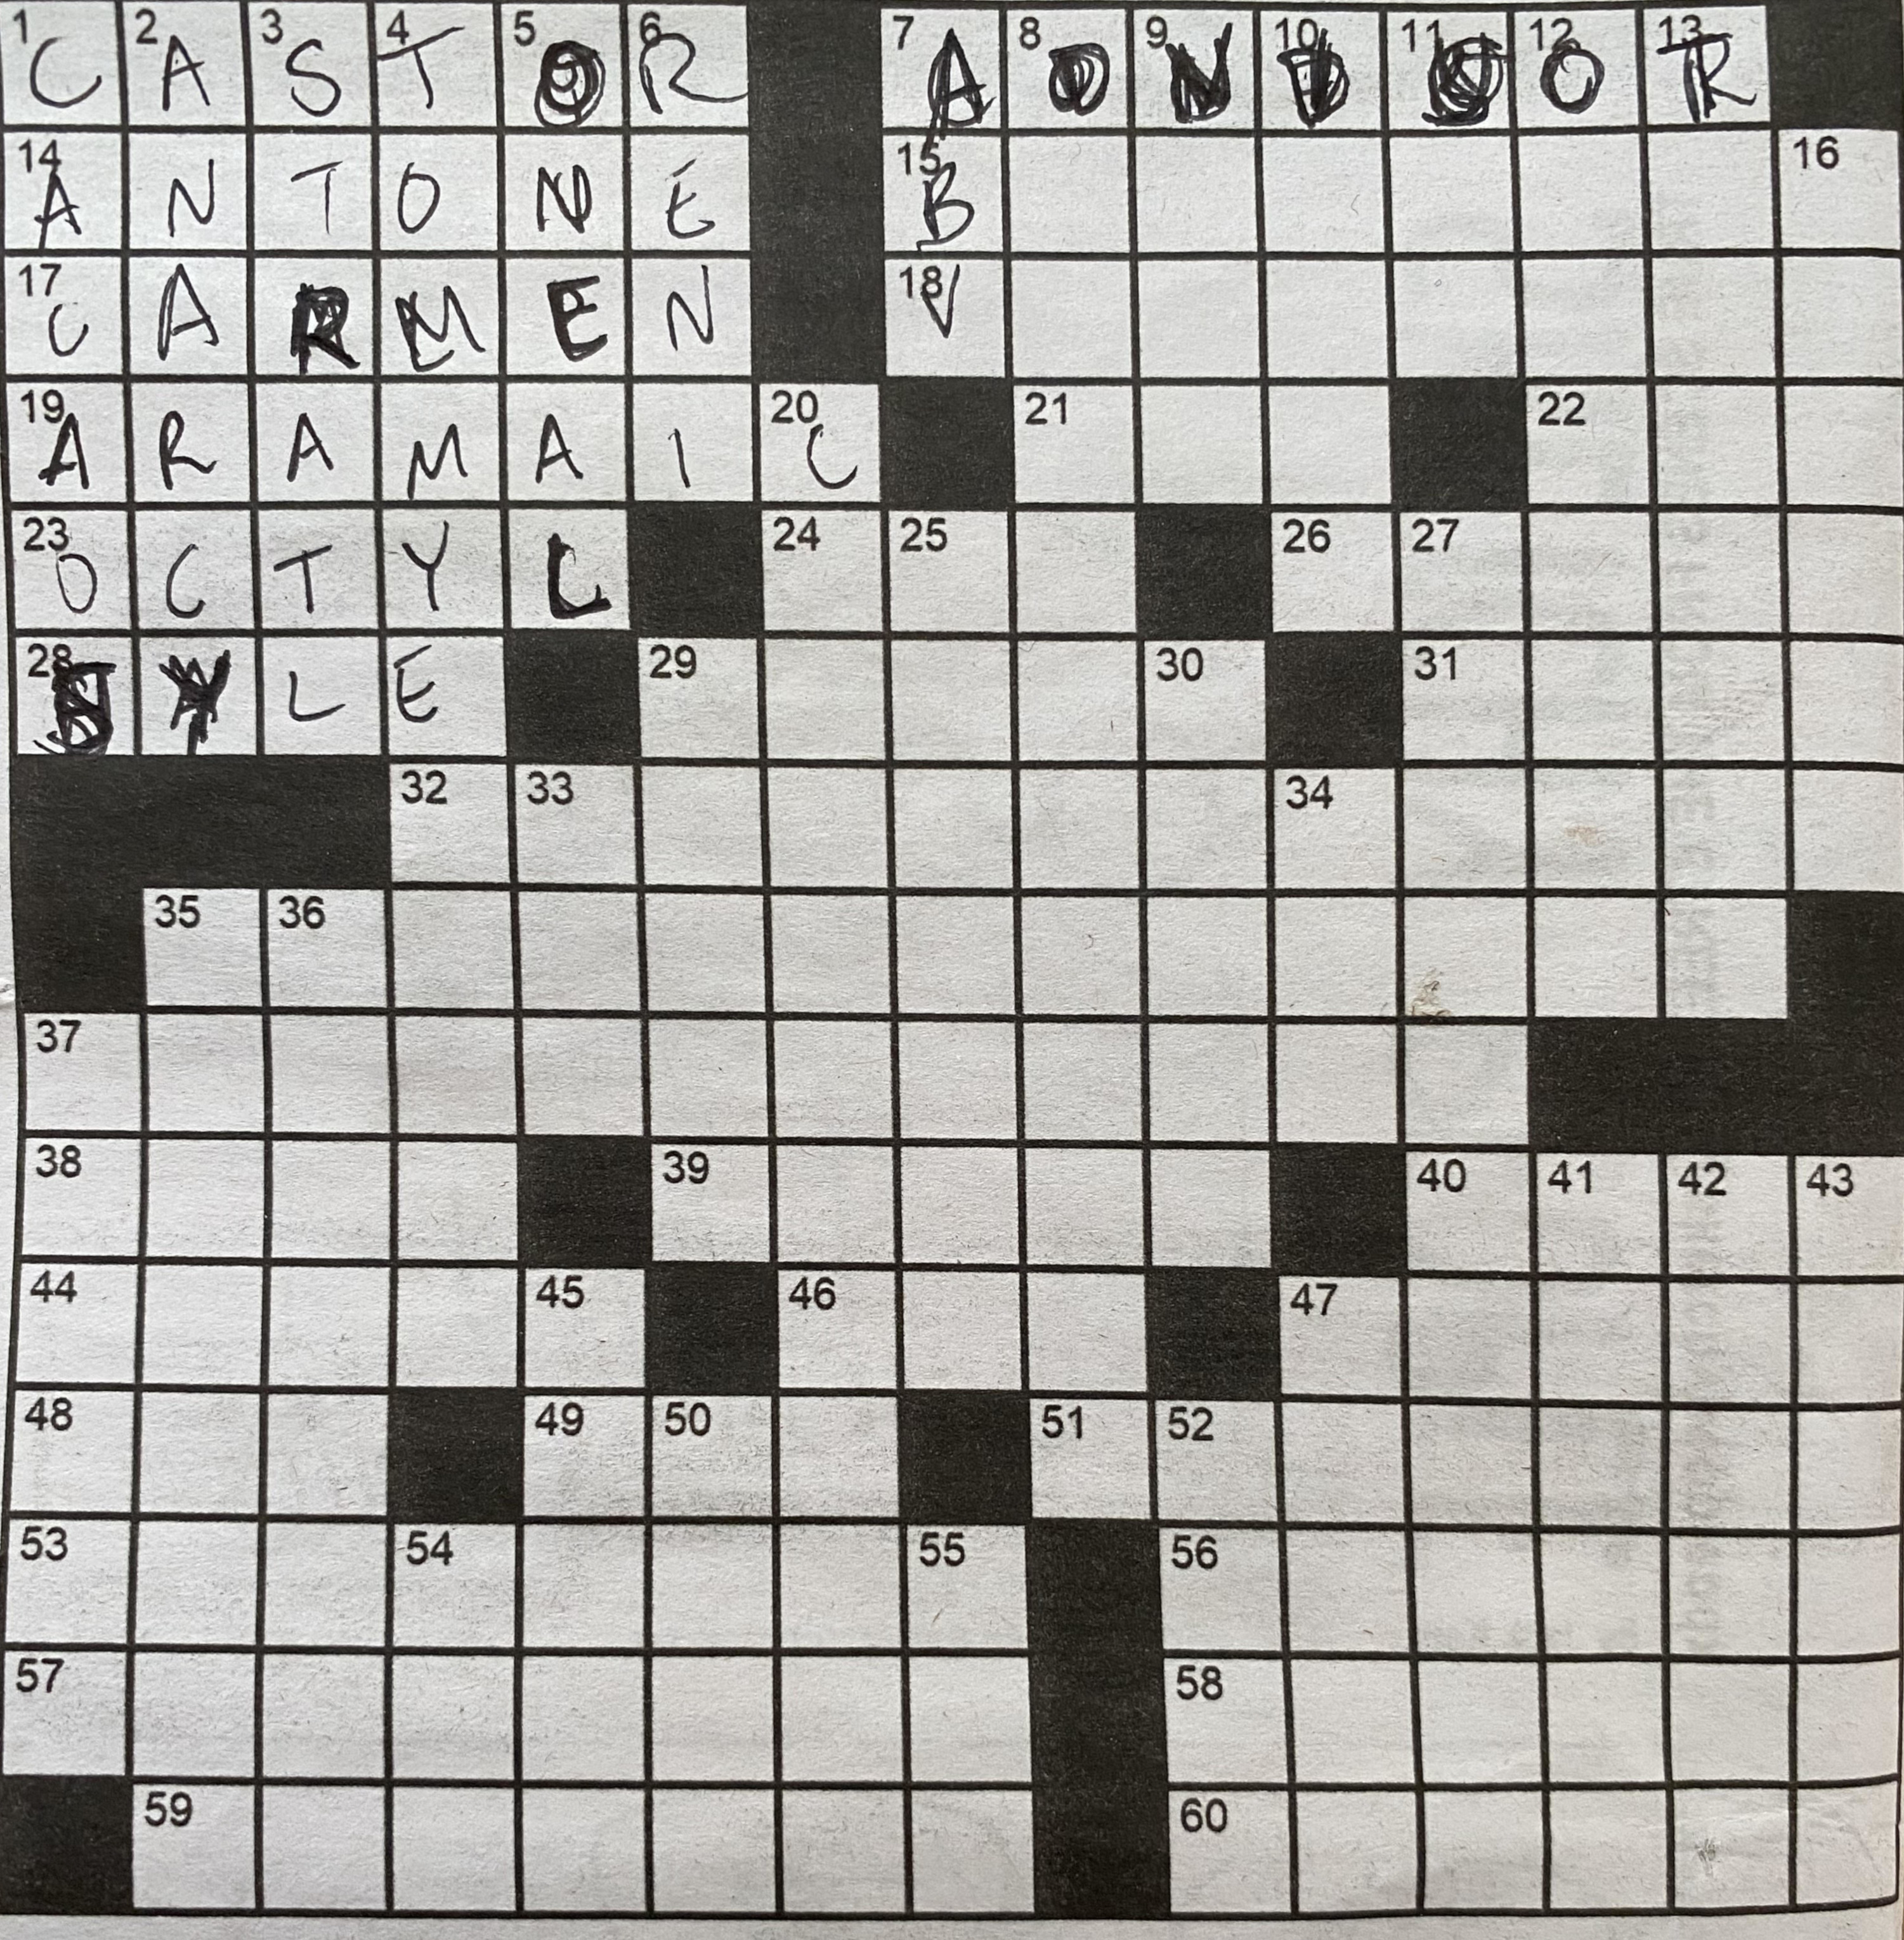 1 C 2 A 3 S 4 T 5 O 6 R 7 A 8 9 N 10 11 12 O 13 R
14 A N T O N E 15 B 16
17 C A R M E N 18 V
19 A R A M A I 20 C 21 22
23 O C T Y L 24 25 26 27
28 S Y L E 29 30 31
32 33 34
35 36
37
38 39 40 41 42 43
44 45 46 47
48 49 50 51 52
53 54 55 56
57 58
59 60